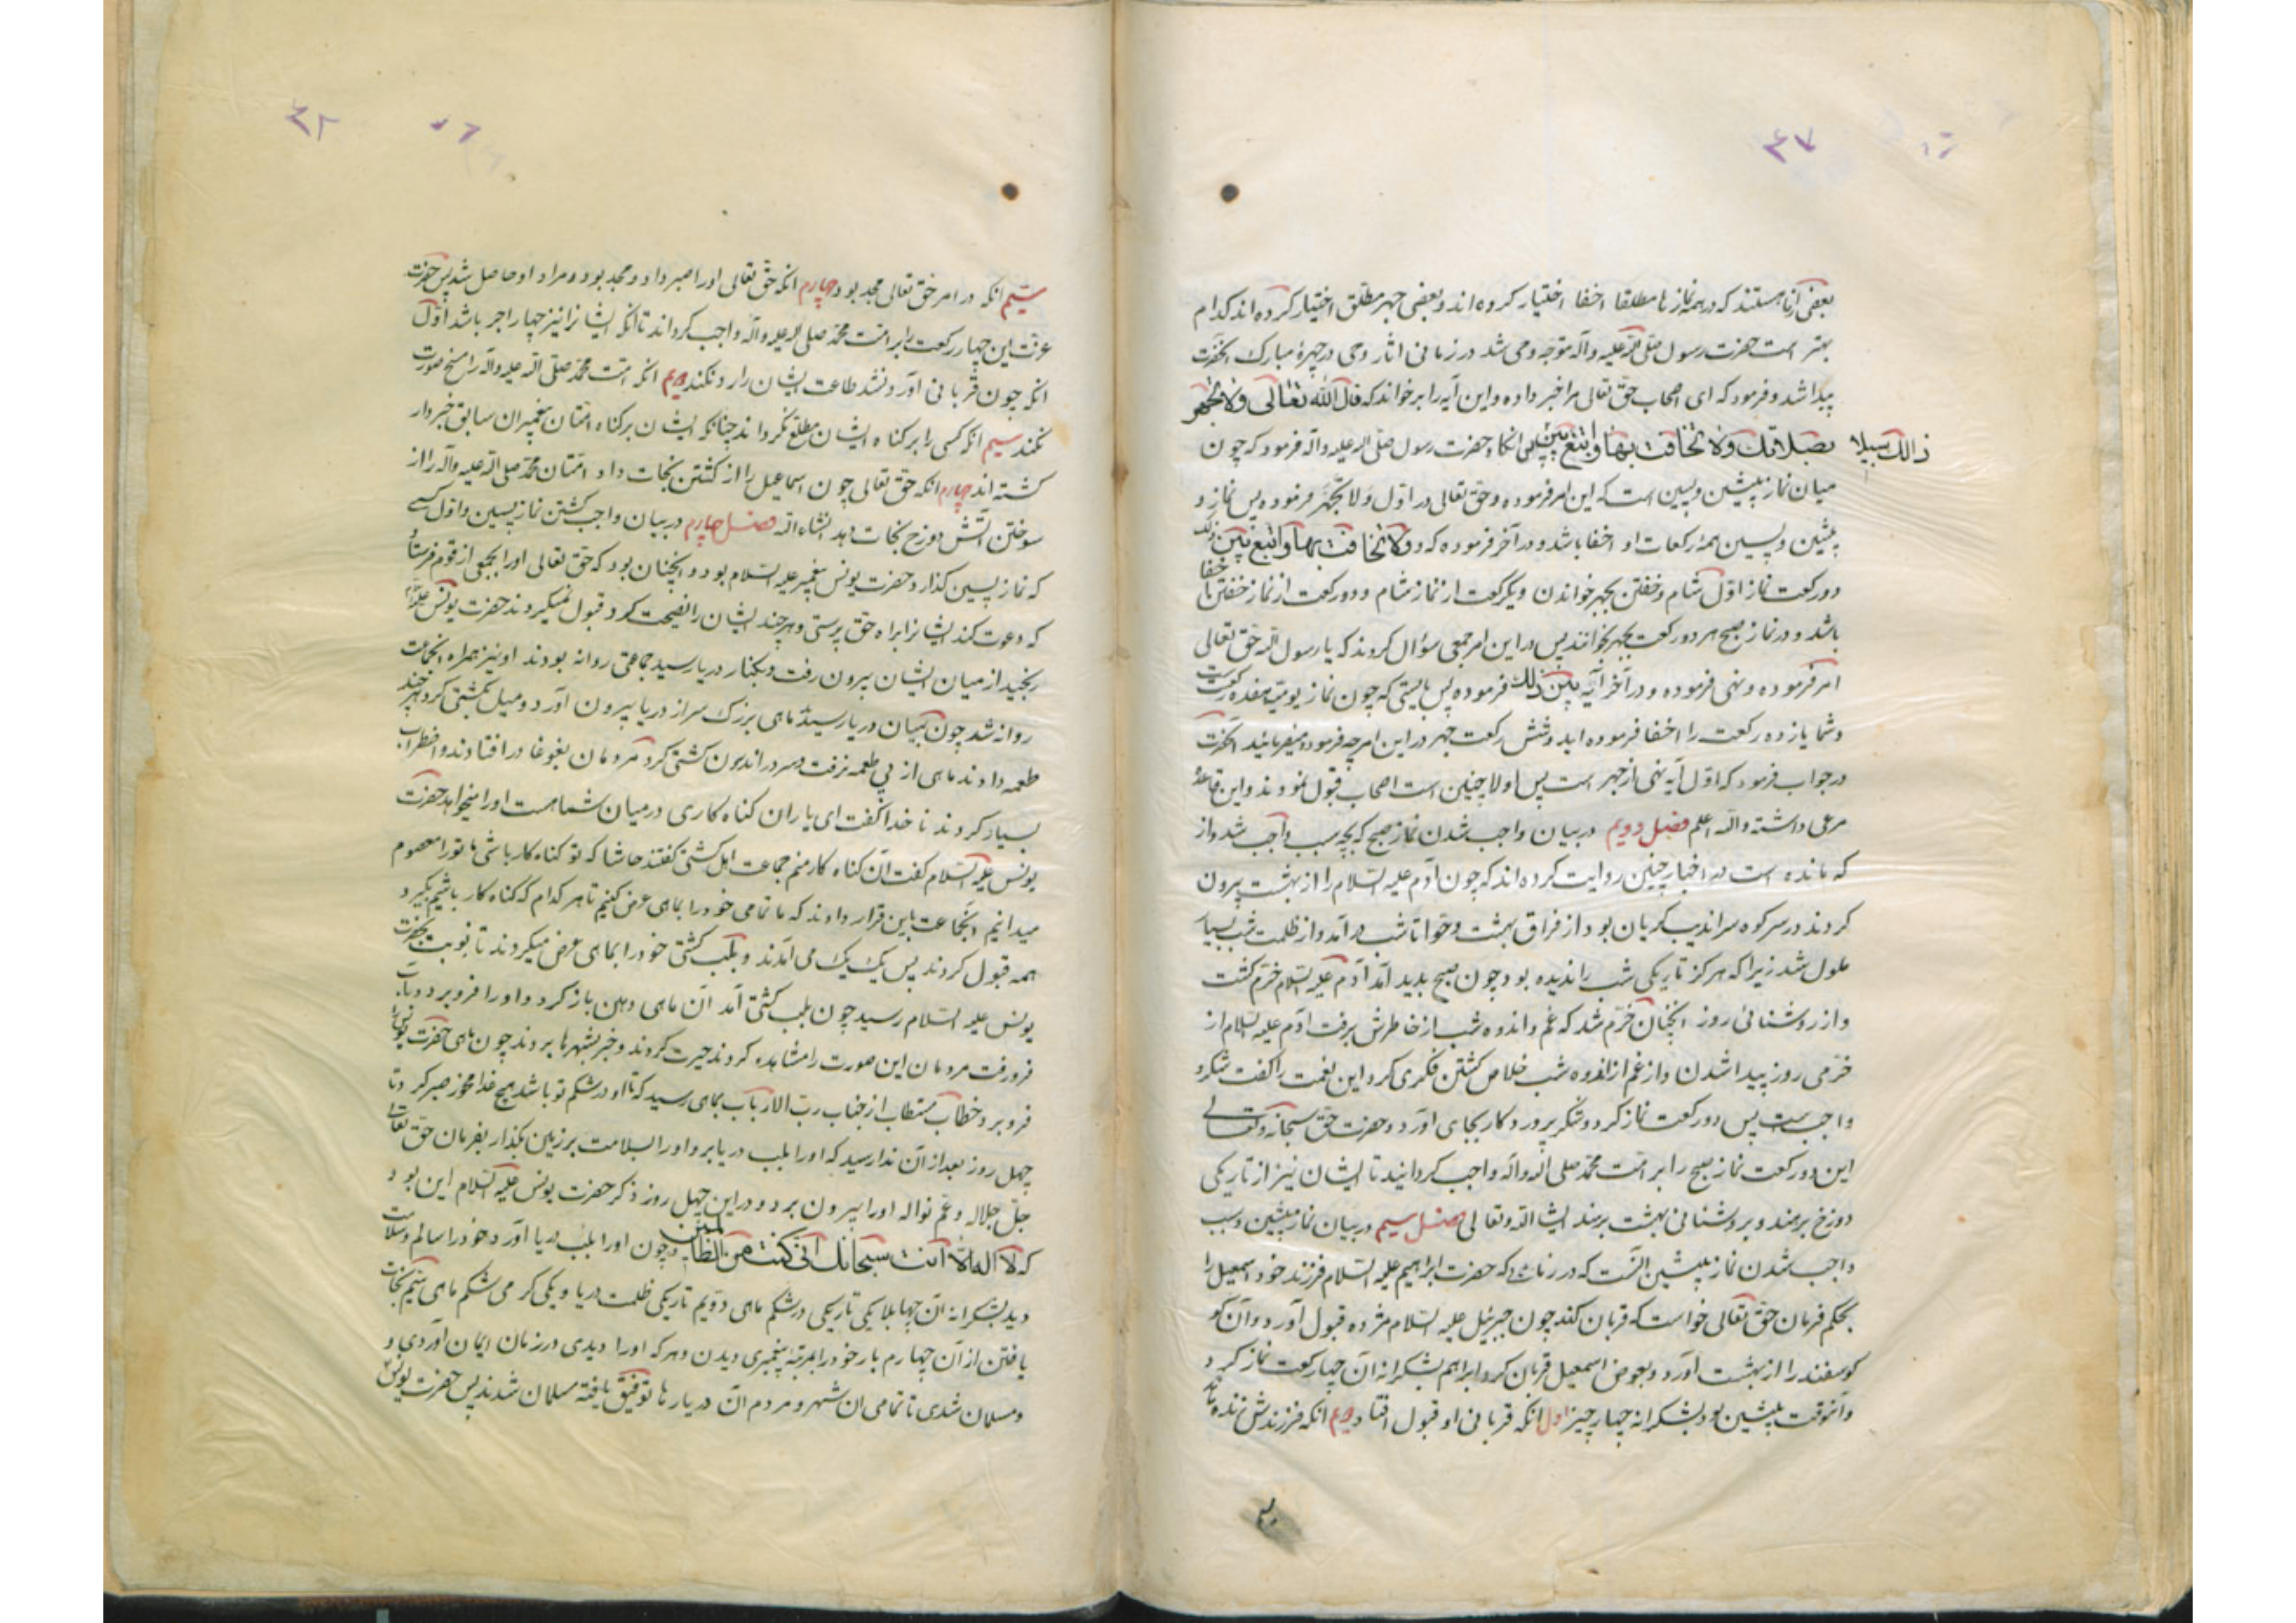 ۴۷
بعضی از ما هستند که در همه نمازها مطلقا اخفا اختیار کرده اند و بعضی جهر مطلق اختیار کرده اند کدام
بهتر است حضرت رسول صلی الله علیه وآله متوجه وحی شد در زمانی اثار وحی در چهرهٔ مبارک آنحضرت
پیدا شد و فرمود که ای اصحاب حق تعالی مرا خبر داده و این آیه را برخواند که قال الله تعالی ولا تجهر
بصلاتک ولا تخافت بها وابتغ بین ذالک سبیلا پس انگاه حضرت رسول صلی الله علیه وآله فرمود که چون
میان نماز پیشین و پسین است که این امر فرموده و حق تعالی در اول ولا تجهر فرموده پس نماز و
پیشین و پسین همه رکعات او اخفا باشد و در آخر فرموده که ولا تخافت بها وابتغ بین ذلک
دو رکعت نماز اول شام و خفتن بجهر خواندن و یکرکعت از نماز شام و دو رکعت از نماز خفتن با خفا
باشد و در نماز صبح هر دو رکعت بجهر بخوانند پس در این امر جمعی سؤال کردند که یا رسول الله حق تعالی
امر فرموده و نهی فرموده و در آخر آیه بین ذلک فرموده پس بایستی که چون نماز یومیه هفده رکعت است
و شما یازده رکعت را اخفا فرموده اید و شش رکعت جهر در این امر چه فرموده میفرمائید آنحضرت
در جواب فرمود که اول آیه نهی از جهر است پس اولا چنین است اصحاب قبول نمودند و این قاعده
مرعی داشته والله اعلم فصل دویم در بیان واجب شدن نماز صبح که بچه سبب واجب شد و از
که مانده است در اخبار چنین روایت کرده اند که چون آدم علیه السلام را از بهشت بیرون
کردند در سر کوه سراندیب گریان بود از فراق بهشت و حوا تا شب درآمد و از ظلمت شب بسیار
ملول شد زیرا که هرگز تاریکی شب را ندیده بود چون صبح پدید آمد آدم علیه السلام خرم گشت
و از روشنائی روز انچنان خرم شد که غم و اندوه شب از خاطرش برفت آدم علیه السلام از
خرمی روز پیدا شدن و از غم از اندوه شب خلاص گشتن فکری کرد این نعمت را گفت شکر
واجب است پس دو رکعت نماز کرد و شکر پروردکار بجای آورد و حضرت حق سبحانه وتعالی
این دو رکعت نماز صبح را بر امت محمد صلی الله وآله واجب گردانید تا ایشان نیز از تاریکی
دوزخ برهند و بروشنائی بهشت برسند انشا الله وتعالی فصل سیم در بیان نماز پیشین و سبب
واجب شدن نماز پیشین آنست که در زمانیکه حضرت ابراهیم علیه السلام فرزند خود اسمعیل را
بحکم فرمان حق تعالی خواست که قربان کند چون جبرئیل علیه السلام مژده قبول آورد و آن
کوسفند را از بهشت آورد و بعوض اسمعیل قربان کرد ابراهیم بشکرانه آن چهار رکعت نماز کرد
و آنوقت پیشین بود بشکرانه چهار چیز اول انکه قربانی او قبول افتاد دویم انکه فرزندش زنده ماند
۴۸
سیم انکه در امر حق تعالی مجد بود چهارم انکه حق تعالی او را صبر داد و مجد بود و مراد او حاصل شد پس حضرت
عزت این چهار رکعت را بر امت محمد صلی الله علیه وآله واجب گرداند تا انکه ایشانرا نیز چهار اجر باشد اول
انکه چون قربانی آوردند طاعت ایشان را رد نکند دویم انکه امت محمد صلی الله علیه وآله را مسخ صورت
نکند سیم انکه کسی را بر کناه ایشان مطلع نکرداند چنانکه ایشان بر کناه امتان پیغمبران سابق خبردار
گشته اند چهارم انکه حق تعالی چون اسماعیل را از کشتن نجات داد امتان محمد صلی الله علیه وآله را از
سوختن آتش دوزخ نجات دهد انشاء الله فصل چهارم در بیان واجب گشتن نماز پسین و اول کسی
که نماز پسین گذارد حضرت یونس پیغمبر علیه السلام بود و انچنان بود که حق تعالی او را بجمعی از قوم فرستاد
که دعوت کند ایشانرا براه حق پرستی و هر چند ایشان را نصیحت کرد قبول نمیکردند حضرت یونس علیه السلام
رنجید از میان ایشان بیرون رفت و بکنار دریا رسید جماعتی روانه بودند او نیز همراه انجماعت
روانه شد چون بمیان دریا رسید ماهی بزرگ سر از دریا بیرون آورد و میل بکشتی کرد هر چند
طعمه دادند ماهی از پی طعمه نرفت و سر در اندرون کشتی کرد مردمان بغوغا در افتادند و اضطراب
بسیار کردند ناخدا گفت ای یاران کناه کاری در میان شما هست او را میخواهد حضرت
یونس علیه السلام گفت آن کناه کار منم جماعت اهل کشتی گفتند حاشا که تو کناه کار باشی ما تو را معصوم
میدانیم انجماعت باین قرار دادند که ما تمامی خود را بماهی عرض کنیم تا هر کدام که کناه کار باشیم بگیرد
همه قبول کردند پس یک یک می آمدند و بلب کشتی خود را بماهی عرض میکردند تا نوبت بحضرت
یونس علیه السلام رسید چون بلب کشتی آمد آن ماهی دهن باز کرد و او را فرو برد و بآب
فرو رفت مردمان این صورت را مشاهده کردند حیرت کردند و خبر بشهرها بردند چون ماهی حضرت یونس را
فرو برد خطاب مستطاب از جناب رب الارباب بماهی رسید که تا او در شکم تو باشد هیچ غذا مخور صبر کرد تا
چهل روز بعد از آن ندا رسید که او را بلب دریا بر و او را بسلامت بر زمین بگذار بفرمان حق تعالی
جل جلاله وعم نواله او را بیرون برد و در این چهل روز ذکر حضرت یونس علیه السلام این بود
که لا اله الا انت سبحانک انی کنت من الظالمین و چون او را بلب دریا آورد خود را سالم و سلامت
دید بشکرانه آن چهار بلا یکی تاریکی در شکم ماهی دویم تاریکی ظلمت دریا و یکی گرمی شکم ماهی سیم نجات
یافتن از آن چهارم بار خود را بمرتبهٔ پیغمبری دیدن و هر که او را دیدی در زمان ایمان آوردی و
و مسلمان شدی تا تمامی ان شهر و مردم آن دیارها توفیق یافته مسلمان شدند پس حضرت یونس